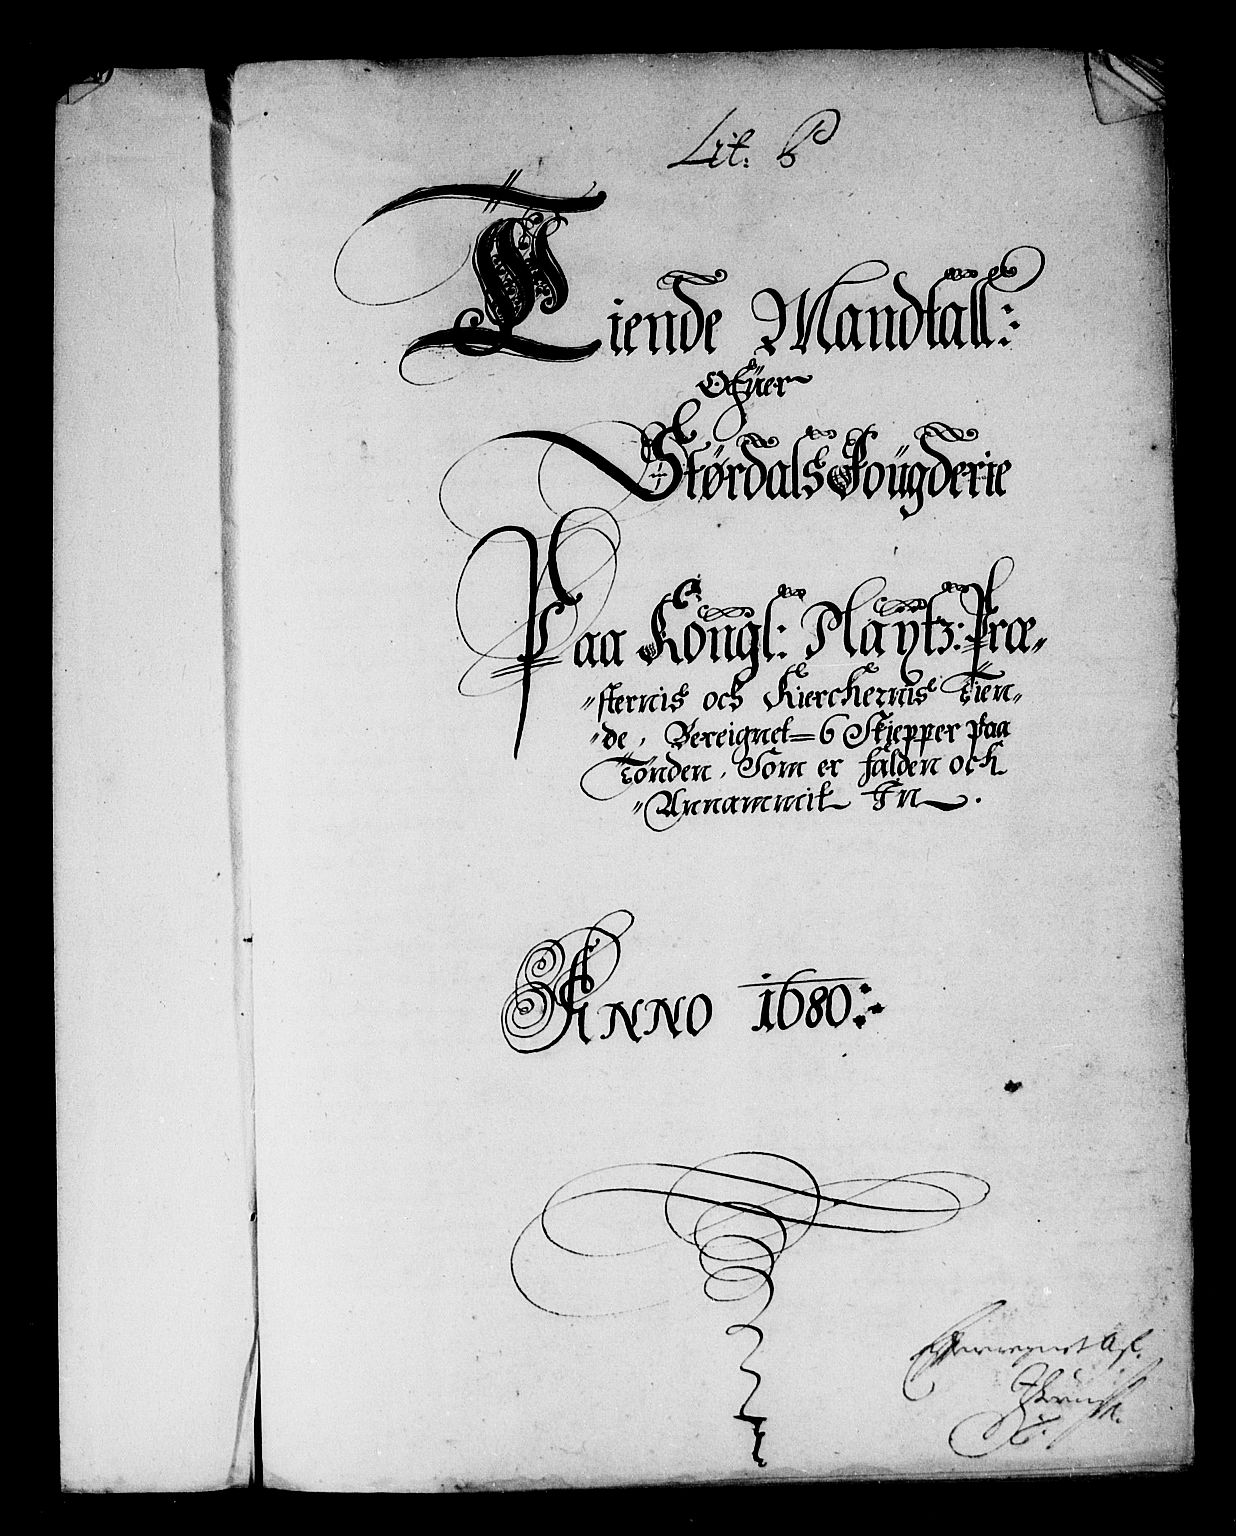 Lit. P
Tiende Mandtall:
Ofüer
Størdals Foügderie
Paa Kongl: Maÿtz: Præ-
sternis och Kierckernis Tien-
de, Bereignet = 6 Skiepper paa
Tonden, Som er falden ock
Annammit In.
ANNO 1680.